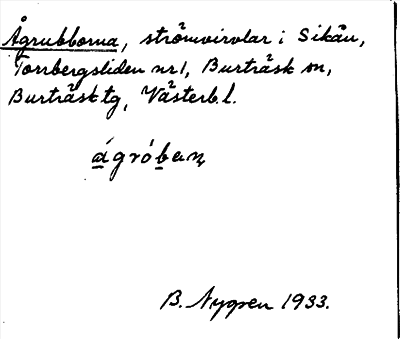 Ågrubborna, strömvirvlar i Sikån,
Torrbergsliden nr 1, Burträsk sn,
Burträsk tg, Västerb. l.
ågróban
B. Nygren 1933.